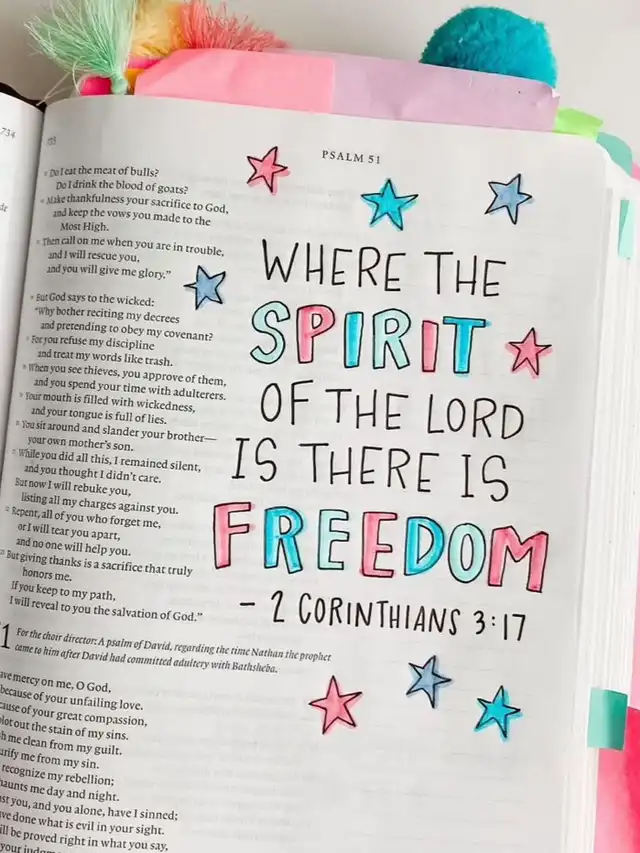 734
PSALM 51
Do I eat the meat of bulls?
Do I drink the blood of goats?
Make thankfulness your sacrifice to God,
and keep the vows you made to the
Most High.
Then call on me when you are in trouble,
and I will rescue you,
and you will give me glory.”
But God says to the wicked:
“Why bother reciting my decrees
and pretending to obey my covenant?
For you refuse my discipline
and treat my words like trash.
When you see thieves, you approve of them,
and you spend your time with adulterers.
Your mouth is filled with wickedness,
and your tongue is full of lies.
You sit around and slander your brother—
your own mother’s son.
While you did all this, I remained silent,
and you thought I didn’t care.
But now I will rebuke you,
listing all my charges against you.
Repent, all of you who forget me,
or I will tear you apart,
and no one will help you.
But giving thanks is a sacrifice that truly
honors me.
If you keep to my path,
I will reveal to you the salvation of God.”
1 For the choir director: A psalm of David, regarding the time Nathan the prophet
came to him after David had committed adultery with Bathsheba.
ave mercy on me, O God,
because of your unfailing love.
cause of your great compassion,
lot out the stain of my sins.
h me clean from my guilt.
urify me from my sin.
recognize my rebellion;
haunts me day and night.
st you, and you alone, have I sinned;
ve done what is evil in your sight.
ill be proved right in what you say,
WHERE THE
SPIRIT
OF THE LORD
IS THERE IS
FREEDOM
- 2 CORINTHIANS 3:17